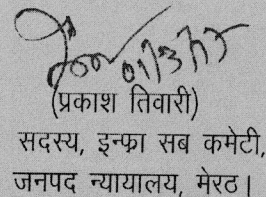 (प्रकाश तिवारी)
सदस्य, इन्फ्रा सब कमेटी,
जनपद न्यायालय, मेरठ।